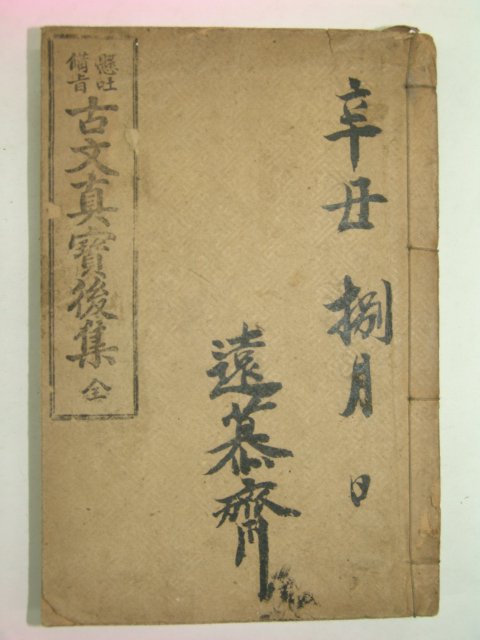 辛丑 捌月 日
遠慕齊
懸吐
備旨
古文真寶後集 全